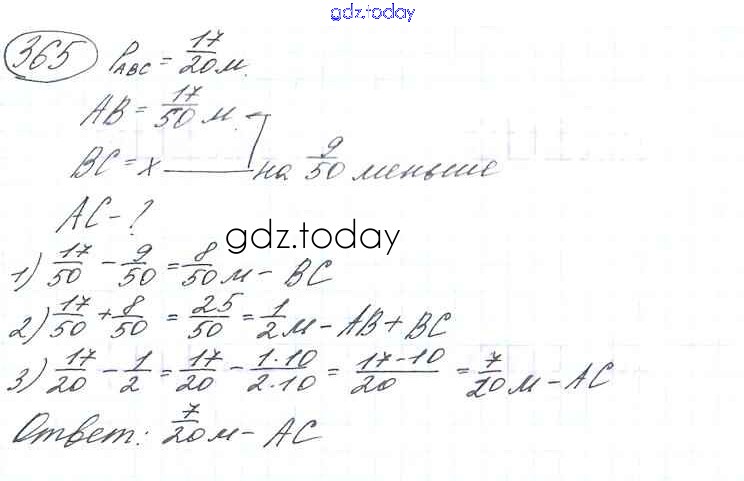 gdz.today
365 P_ABC = 17/20 м.
AB = 17/50 м.
BC = x на 9/50 меньше
AC - ?
gdz.today
1) 17/50 - 9/50 = 8/50 м - BC
2) 17/50 + 8/50 = 25/50 = 1/2 м - AB + BC
3) 17/20 - 1/2 = 17/20 - 1·10/2·10 = 17-10/20 = 7/20 м - AC
Ответ: 7/20 м - AC